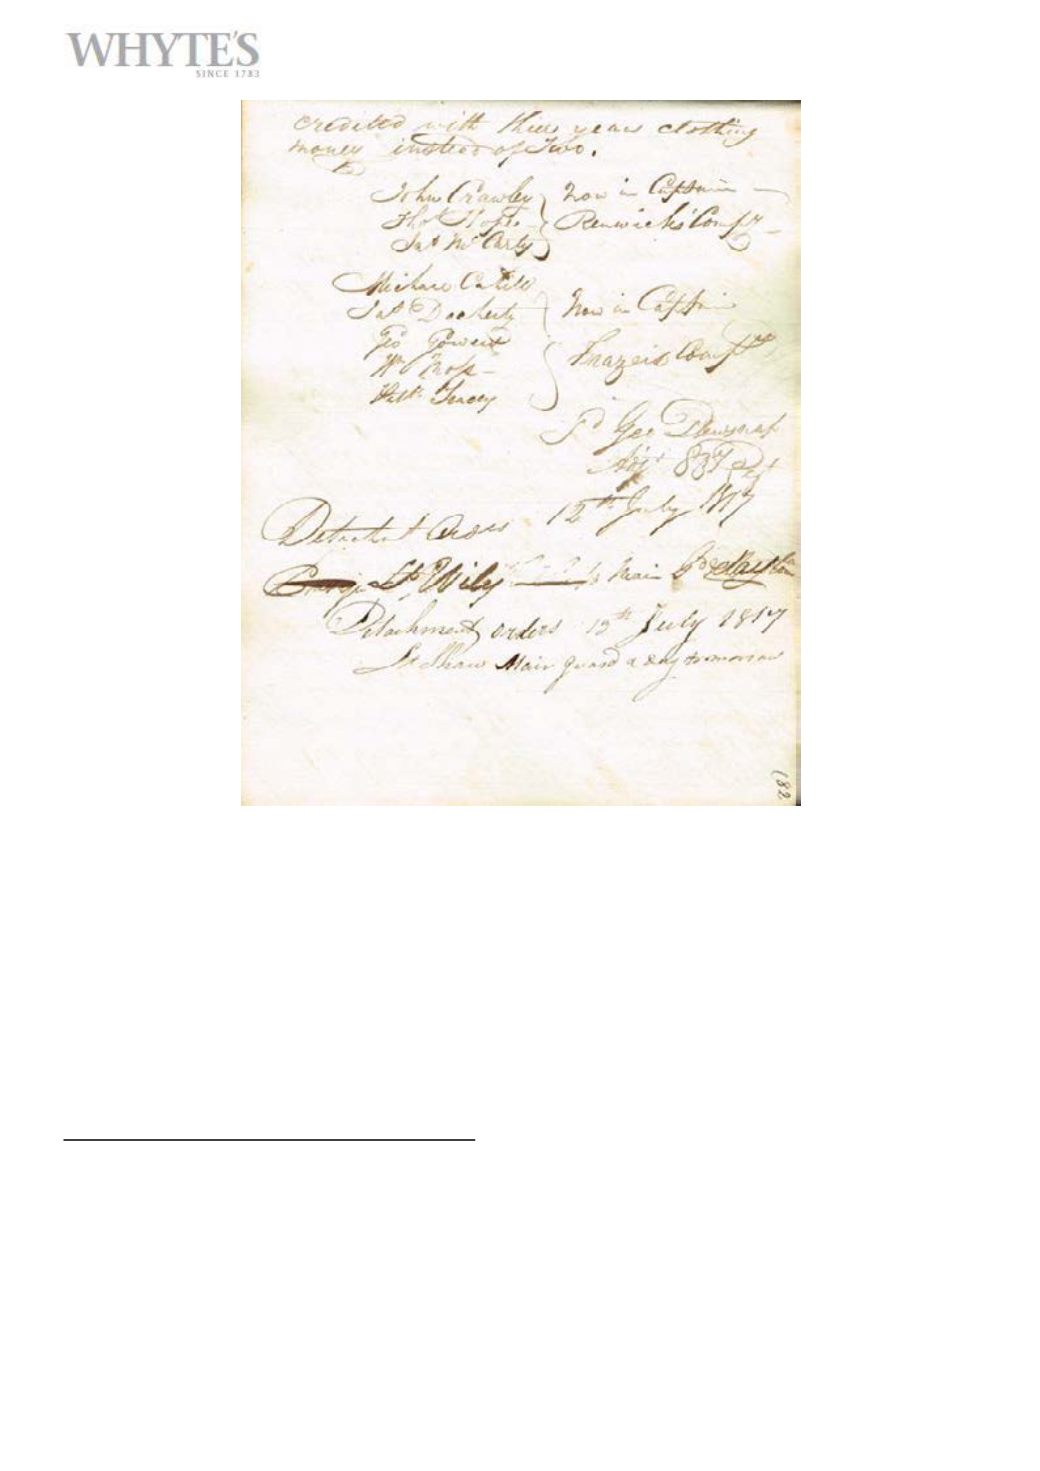 WHYTE'S
SINCE 1783
credited with three years clothing
money instead of Two.
John Crawley Now in Captain
Thos Renwick's Compy
Jas McCarty
Michael Cahill
Jas Docherty Now in Captain
Geo Gowen
Wm Moss Frazer's Compy
Patk Tracey
Sd Geo
Adjt 83rd Regt
Detachmt Orders 12th July 1817
Lt Wily Main Gd
Detachment orders 13th July 1817
Lt Shaw Main guard a day tomorrow
182